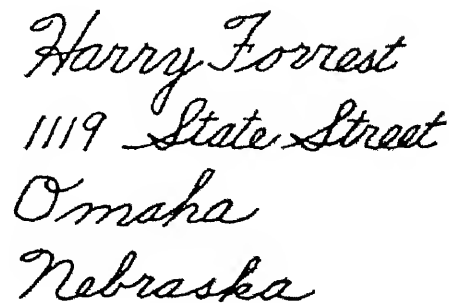 Harry Forrest
1119 State Street
Omaha
Nebraska